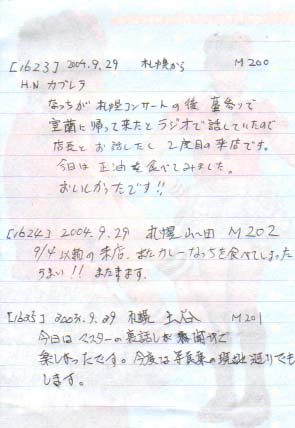 [1623] 2004.9.29 札幌から M200
H.N カブレラ
なっちが札幌コンサートの後 墓参りで
室蘭に帰って来たとラジオで話していたので
店長とお話したし 2度目の来店です。
今日は正油を食べてみました。
おいしかったです!!
[1624] 2004.9.29 札幌 山田 M202
9/4以来の来店。またカレーなっちを食べてしまった
うまい!! また来ます。
[1625] 2004.9.29 札幌 M201
今日はマスターの裏話しが聞けて
楽しかったです。今度は写真集の現地巡りでも
します。